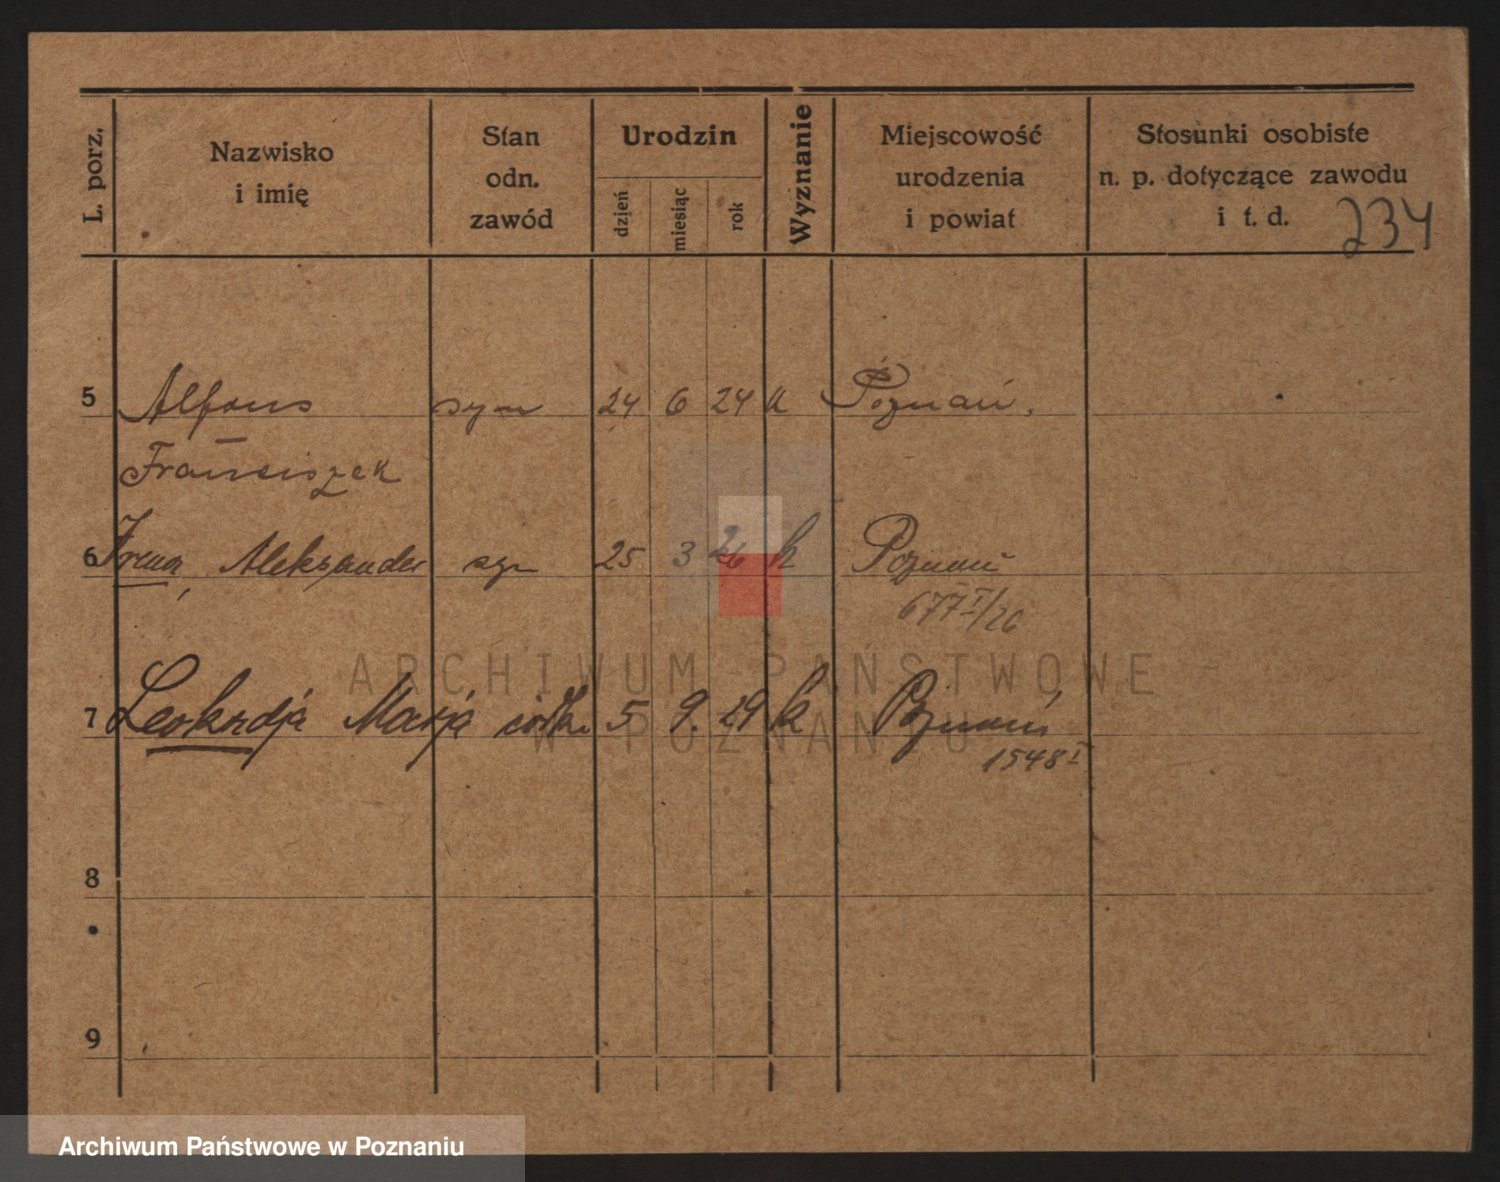 L. porz.
Nazwisko
i imię
Stan
odn.
zawód
Urodzin
dzień
miesiąc
rok
Wyznanie
Miejscowość
urodzenia
i powiat
Stosunki osobiste
n. p. dotyczące zawodu
i t. d.
234
5 Alfons syn 24 6 24 k Poznań.
Franciszek
6 Aleksander syn 25 3 26 k Poznań
677 I/26
ARCHIWUM PAŃSTWOWE
7 Leokadja Marja córka 5 9. 29 k Poznań
W POZNANIU
1548 I
8
9
Archiwum Państwowe w Poznaniu